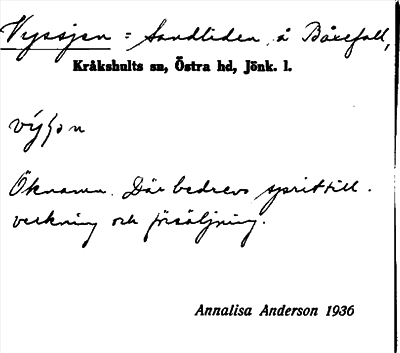 Vyssjen = Sandliden, å Båxefall,
Kråkshults sn, Östra hd, Jönk. l.
Öknamn. Där bedrevs sprittill-
verkning och försäljning.
Annalisa Anderson 1936